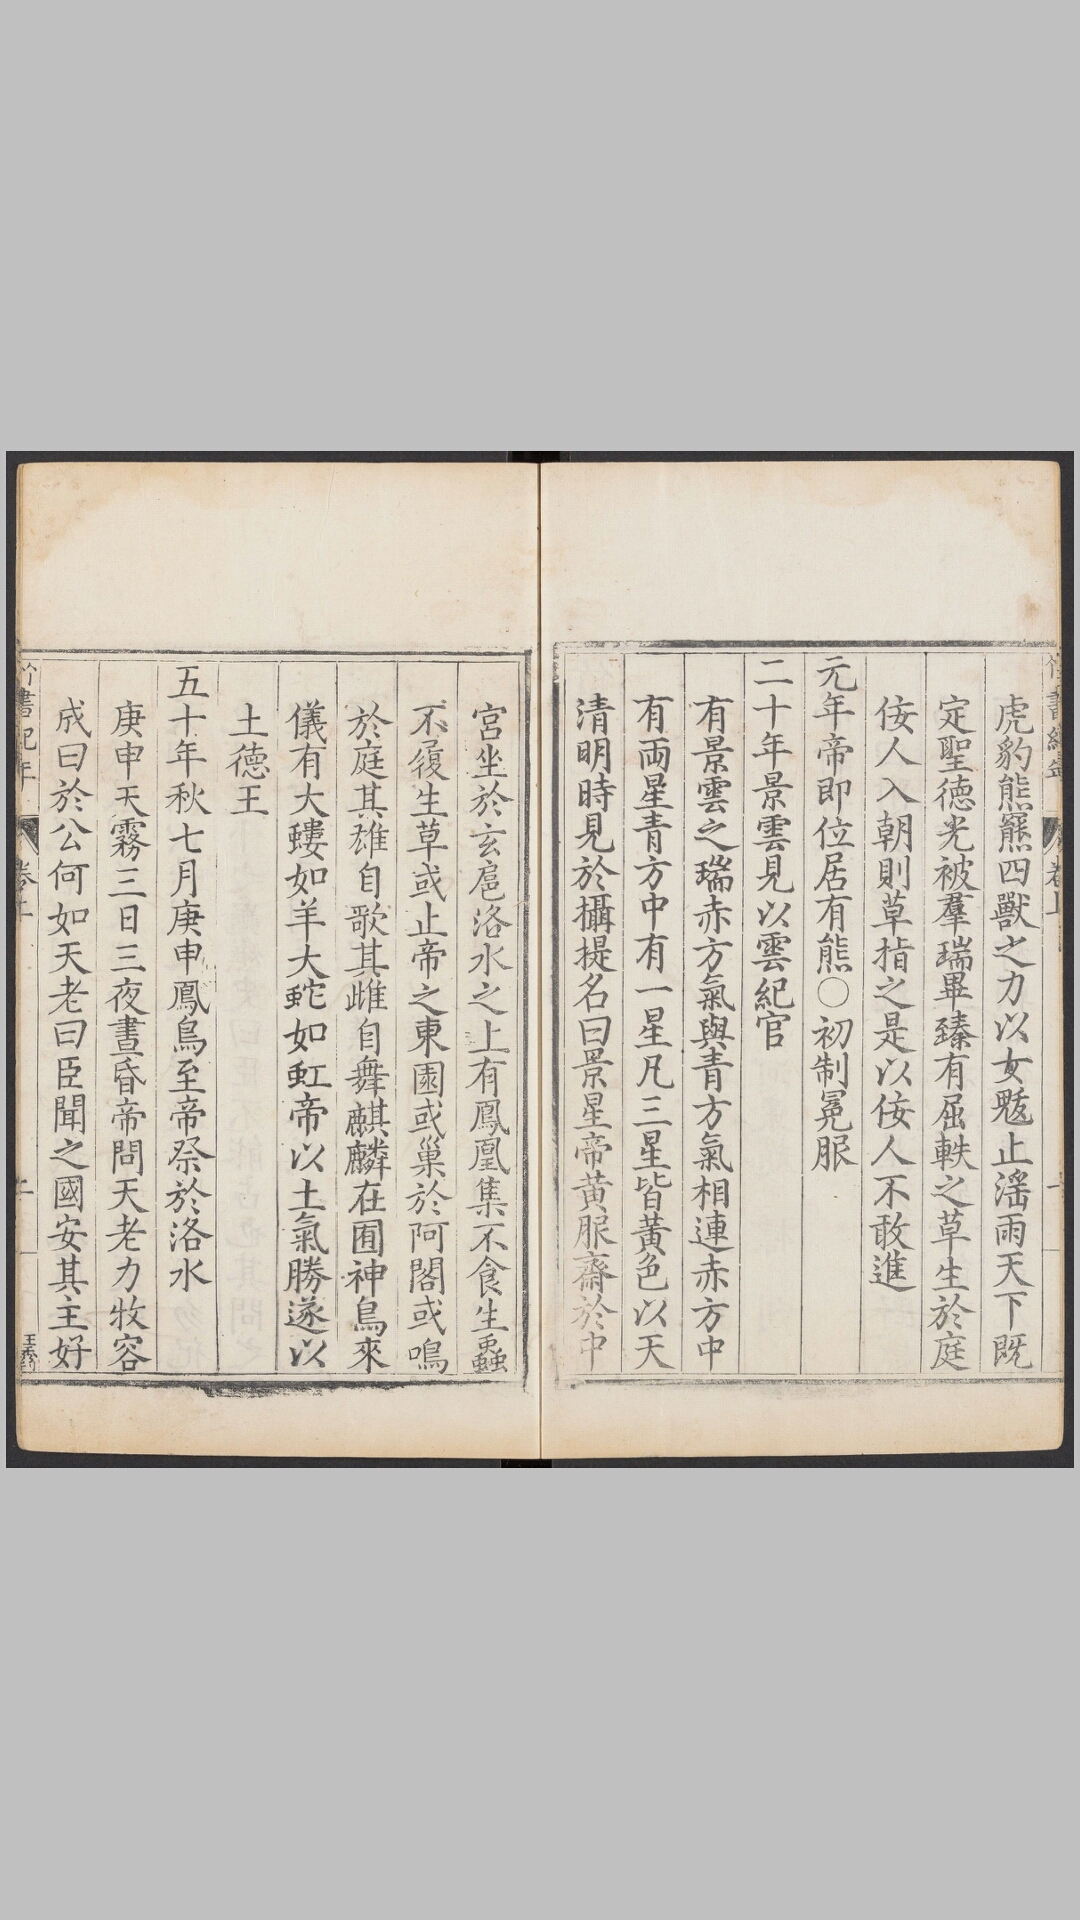 虎豹熊羆四獸之力以女魃止滛雨天下既
定聖德光被羣瑞畢臻有屈軼之草生於庭
佞人入朝則草指之是以佞人不敢進
元年帝即位居有熊〇初制冕服
二十年景雲見以雲紀官
有景雲之瑞赤方氣與青方氣相連赤方中
有兩星青方中有一星凡三星皆黃色以天
清明時見於攝提名曰景星帝黃服齋於中
宮坐於玄扈洛水之上有鳳凰集不食生蟲
不履生草或止帝之東園或巢於阿閣或鳴
於庭其雄自歌其雌自舞麒麟在囿神鳥來
儀有大螻如羊大蛇如虹帝以土氣勝遂以
土德王
五十年秋七月庚申鳳鳥至帝祭於洛水
庚申天霧三日三夜晝昏帝問天老力牧容
成曰於公何如天老曰臣聞之國安其主好
竹書紀年